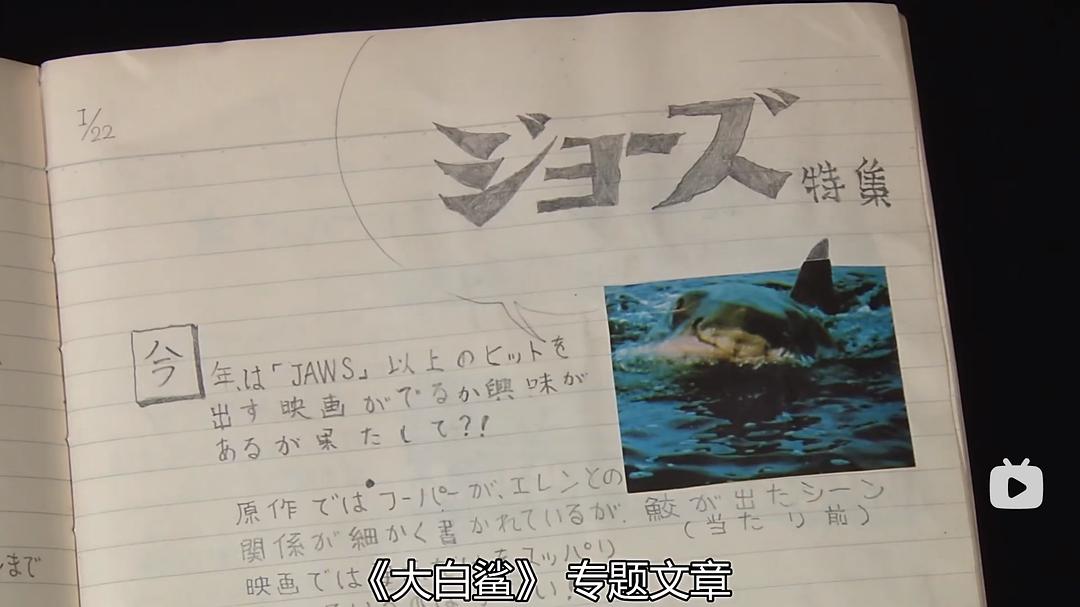 1/22
ジョーズ特集
今年は「JAWS」以上のヒットを
出す映画がでるか興味が
あるが果たして?!
原作ではフーパーが、エレンとの
関係が細かく書かれているが、
映画では
スッパリ
鮫が出たシーン
(当たり前)
まで
《大白鲨》 专题文章